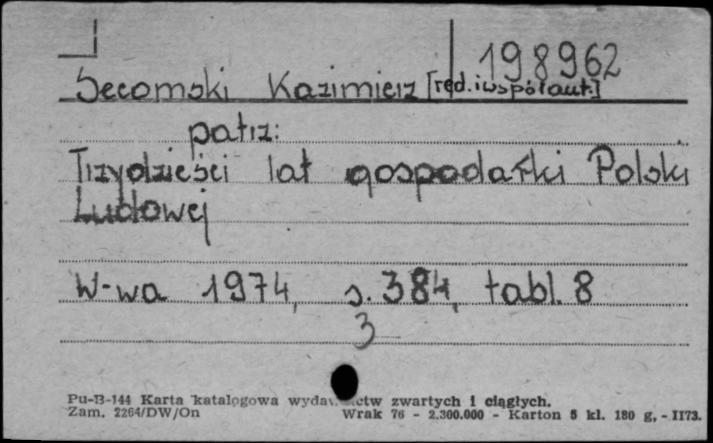 198962
Secomski Kazimierz [red. i współaut.]
patrz:
Trzydzieści lat gospodarki Polski
Ludowej
W-wa 1974, s. 384, tabl. 8
3
Pu-B-144 Karta katalogowa wydawnictw zwartych i ciągłych.
Zam. 2264/DW/On Wrak 76 - 2.300.000 - Karton 5 kl. 180 g, - II73.